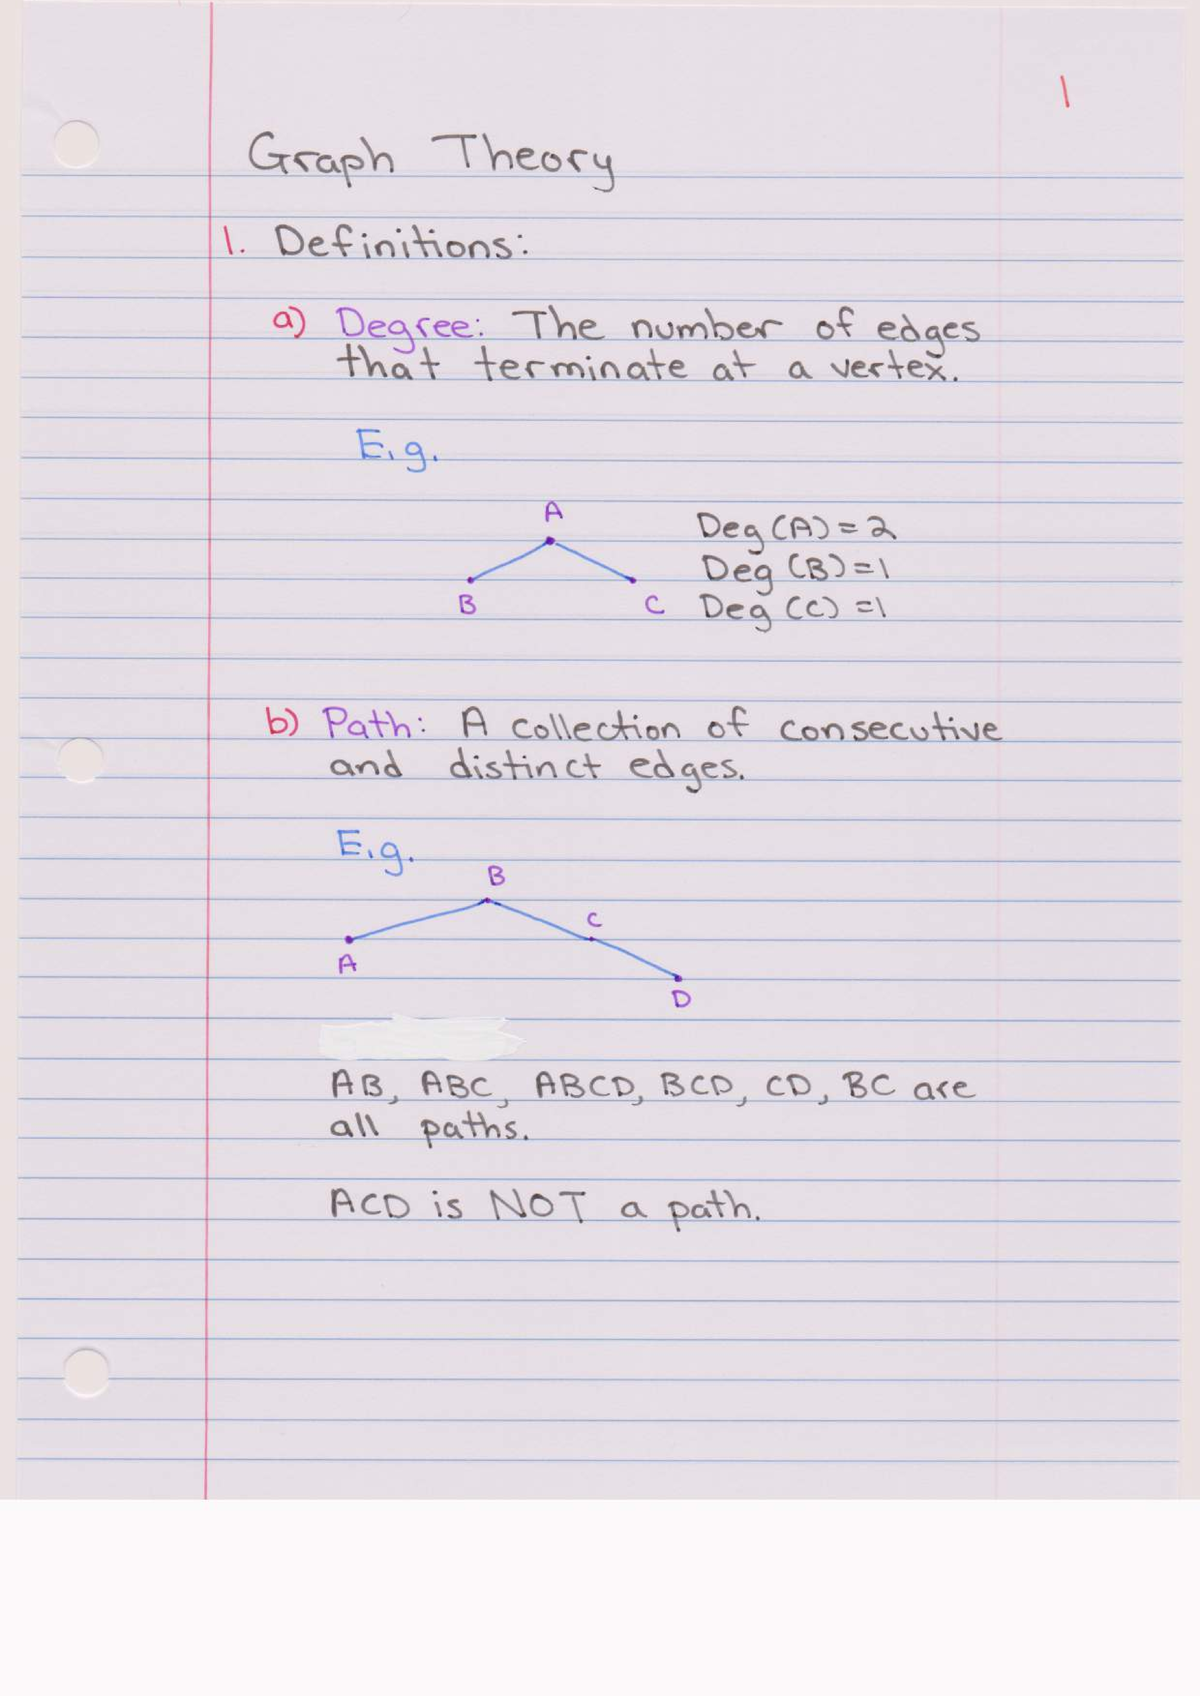 1
Graph Theory
1. Definitions:
a) Degree: The number of edges
that terminate at a vertex.
E.g.
A
B
C
Deg (A) = 2
Deg (B) = 1
Deg (C) = 1
b) Path: A collection of consecutive
and distinct edges.
E.g.
B
C
A
D
AB, ABC, ABCD, BCD, CD, BC are
all paths.
ACD is NOT a path.